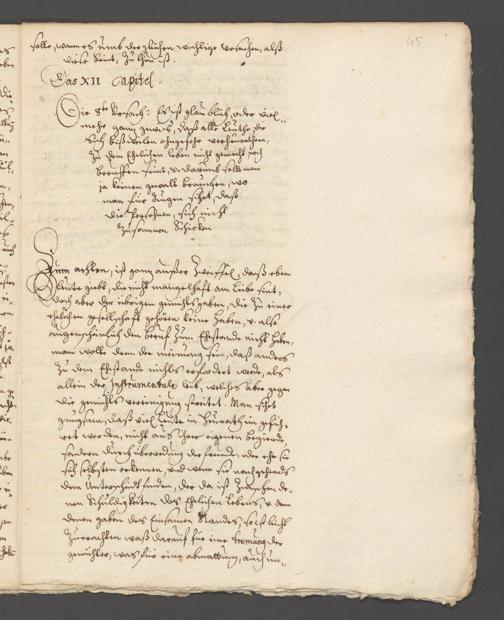 45
solle, wann es umb dergleichen wichtige ursachen, alß
diese seint, zu thun ist.
Das XII Capitel.
Die 8te Ursach: Es ist glaublich, oder viel-
mehr gantz gewiß, daß alle Leuthe, die
sich bißweilen ohngefehr verheurathen,
zu dem Ehelichen leben nicht gemacht noch
beruffen seint, v. darumb soll man
ja keinen gewalt brauchen, wo
man für Augen sihet, daß
die Persohnen, sich nicht
zusammen schicken
Zum achten, ist gantz außer Zweiffel, daß eben
Leute giebt, die nicht mangelhafft am Leibe seint,
doch aber der übrigen gemüths gaben, die zu einer
ehelichen gesellschafft gehören keine haben, v. also
augenscheinlich den beruff zum Ehestande nicht haben,
man wolle denn der meinung sein, daß anders
zu dem Ehestande nichts erfordert werde, als
allein der Instrumentale leib, welches aber gegen
die gemüths vereinigung streitet. Man sihet
gnugsam, daß viel Leute in Heurath gefüh-
ret werden, nicht aus ihrer eigenen begierde,
sondern durch überredung der freunde, oder ehe sie
sich selbsten erkennen, und wenn sie nachgehends
den Unterschied finden, der da ist zwischen de-
nen Schuldigkeiten des Ehelichen Lebens, v. den
denen gaben des einsamen Standes, so ist leicht
zuerachten waß darauß für eine trennung der
gemüther, was für eine abmattung, auch un-